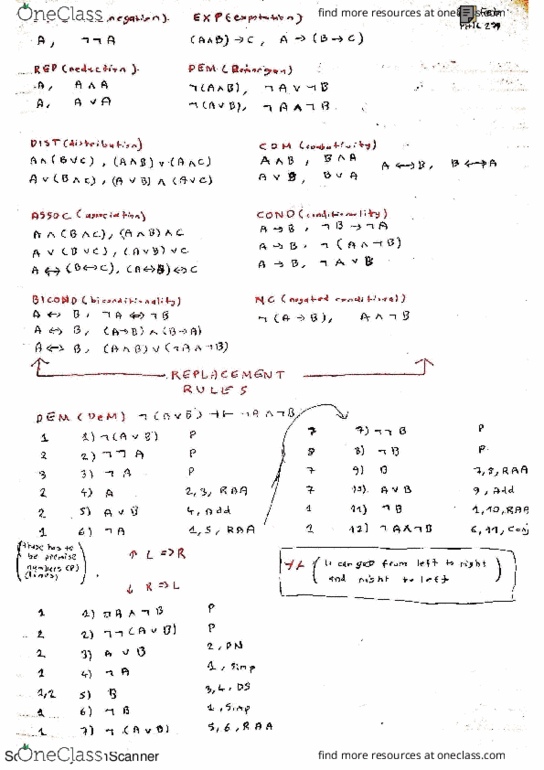 OneClass
find more resources at oneclass.com
negation). EXP (exportation)
A, ¬¬A (A∧B)→C, A→(B→C)
RED (reduction). DEM (Demorgan)
A, A∧A ¬(A∧B), ¬A∨¬B
A, A∨A ¬(A∨B), ¬A∧¬B
DIST (distribution) COM (
A∧(B∨C), (A∧B)∨(A∧C) A∧B, B∧A A↔B, B↔A
A∨(B∧C), (A∨B)∧(A∨C) A∨B, B∨A
ASSOC (association) COND (conditionality)
A∧(B∧C), (A∧B)∧C A→B, ¬B→¬A
A∨(B∨C), (A∨B)∨C A→B, ¬(A∧¬B)
A↔(B↔C), (A↔B)↔C A→B, ¬A∨B
BICOND (biconditionality) NC (negated conditional)
A↔B, ¬A↔¬B ¬(A→B), A∧¬B
A↔B, (A→B)∧(B→A)
A↔B, (A∧B)∨(¬A∧¬B)
REPLACEMENT
RULES
DEM (DeM) ¬(A∨B) ⊣⊢ ¬A∧¬B
1 1) ¬(A∨B) P
2 2) ¬¬A P
3 3) ¬A P
2 4) A 2,3, RAA
2 5) A∨B 4, Add
1 6) ¬A 1,5, RAA
7 7) ¬¬B P
8 8) ¬B P
7 9) B 7,8, RAA
7 10) A∨B 9, Add
1 11) ¬B 1,10, RAA
1 12) ¬A∧¬B 6,11, Conj
(these has to
be premise
numbers (P)
(lines)
↑ L => R
↓ R => L
⊣⊢ (it can go from left to right
and right to left)
1 1) ¬A∧¬B P
2 2) ¬¬(A∨B) P
2 3) A∨B 2, DN
1 4) ¬A 1, Simp
1,2 5) B 3,4, DS
1 6) ¬B 1, Simp
1 7) ¬(A∨B) 5,6, RAA
OneClass
Scanner
find more resources at oneclass.com